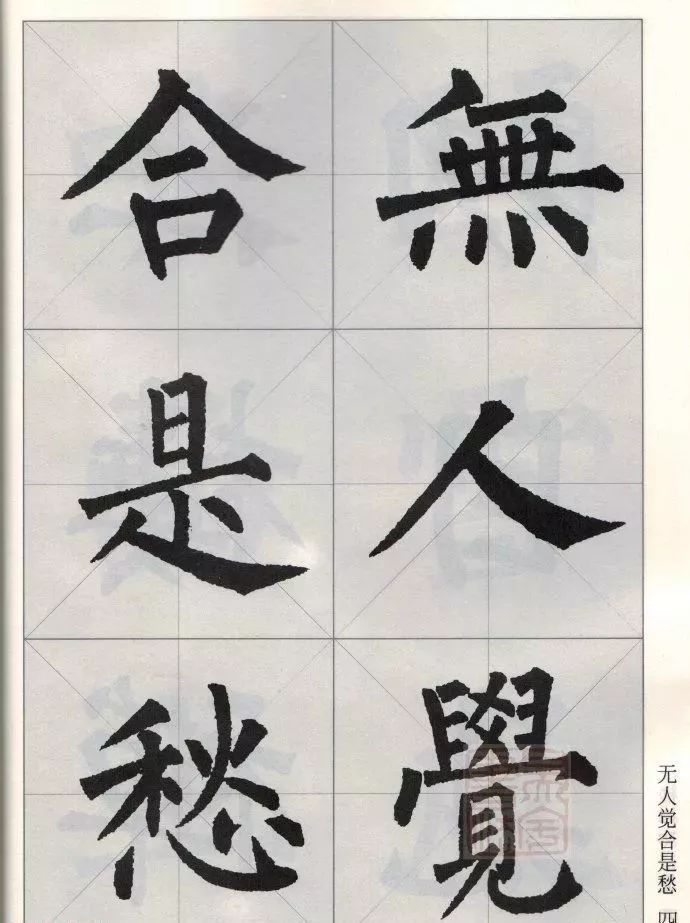 無人覺
合是愁
无人觉合是愁 四